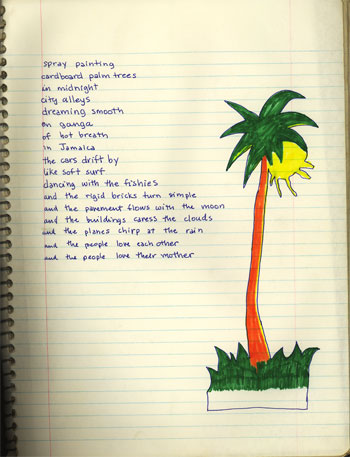 spray painting
cardboard palm trees
in midnight
city alleys
dreaming smooth
on ganga
of hot breath
in Jamaica
the cars drift by
like soft surf
dancing with the fishies
and the rigid bricks turn simple
and the pavement flows with the moon
and the buildings caress the clouds
and the planes chirp at the rain
and the people love each other
and the people love their mother